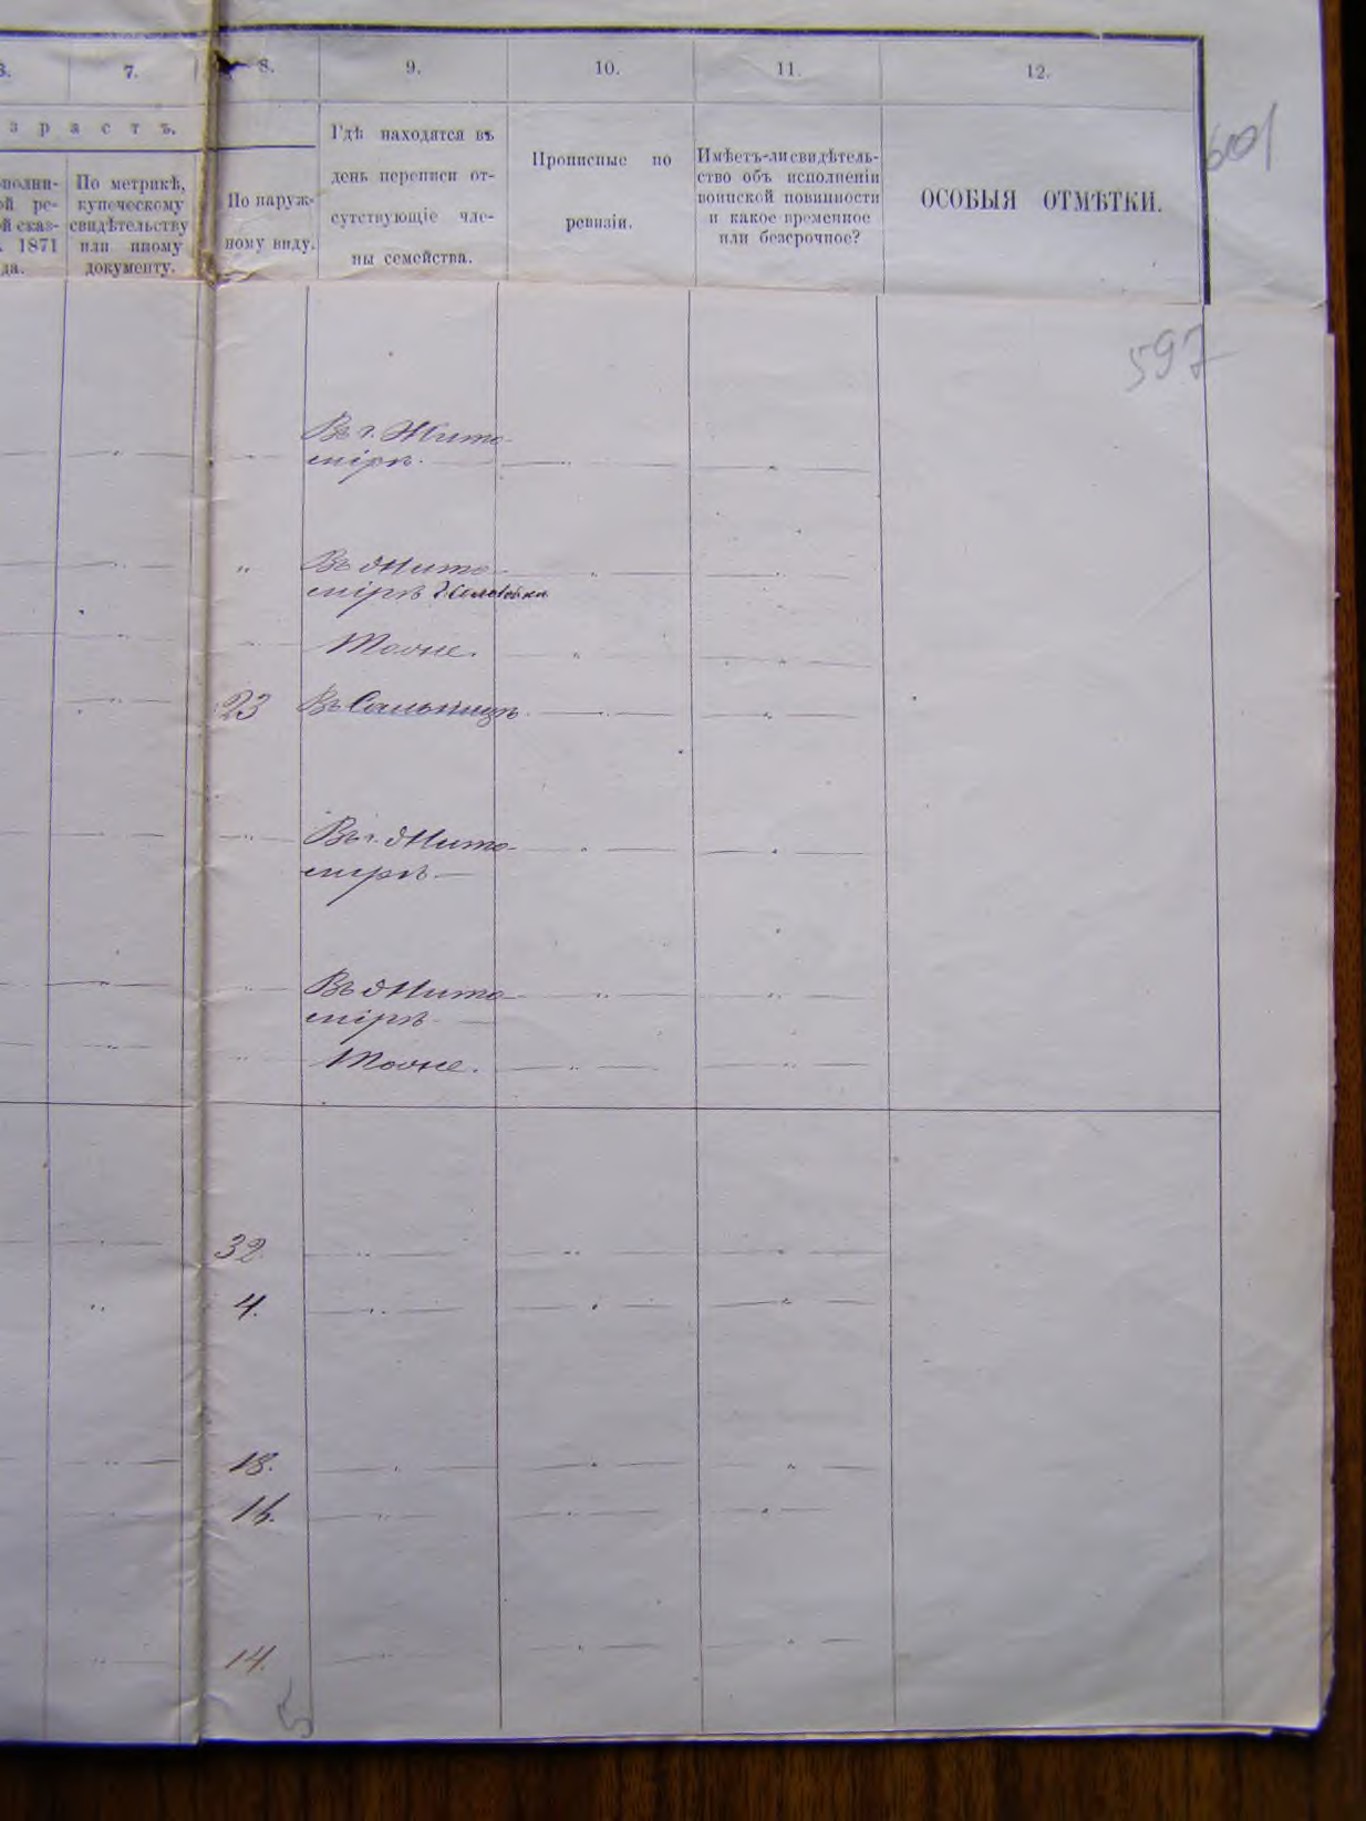 8. 9. 10. 11. 12.
7.
зрастъ.
полни-
ой ре-
й сказ-
. 1871
да.
По метрикѣ,
купеческому
свидѣтельству
или иному
документу.
По наруж-
ному виду.
Гдѣ находятся въ
день переписи от-
сутствующіе чле-
ны семейства.
Прописные по
ревизіи.
Имѣетъ-ли свидѣтель-
ство объ исполненіи
воинской повинности
и какое временное
или безсрочное?
ОСОБЫЯ ОТМѢТКИ.
601
597
Въ г. Жито-
мірѣ.
Въ Жито-
мірѣ
Тоже.
23 Въ Сальницѣ
Въ г. Жито-
мірѣ
Въ Жито-
мірѣ
Тоже.
32
4.
18.
16.
14.
5